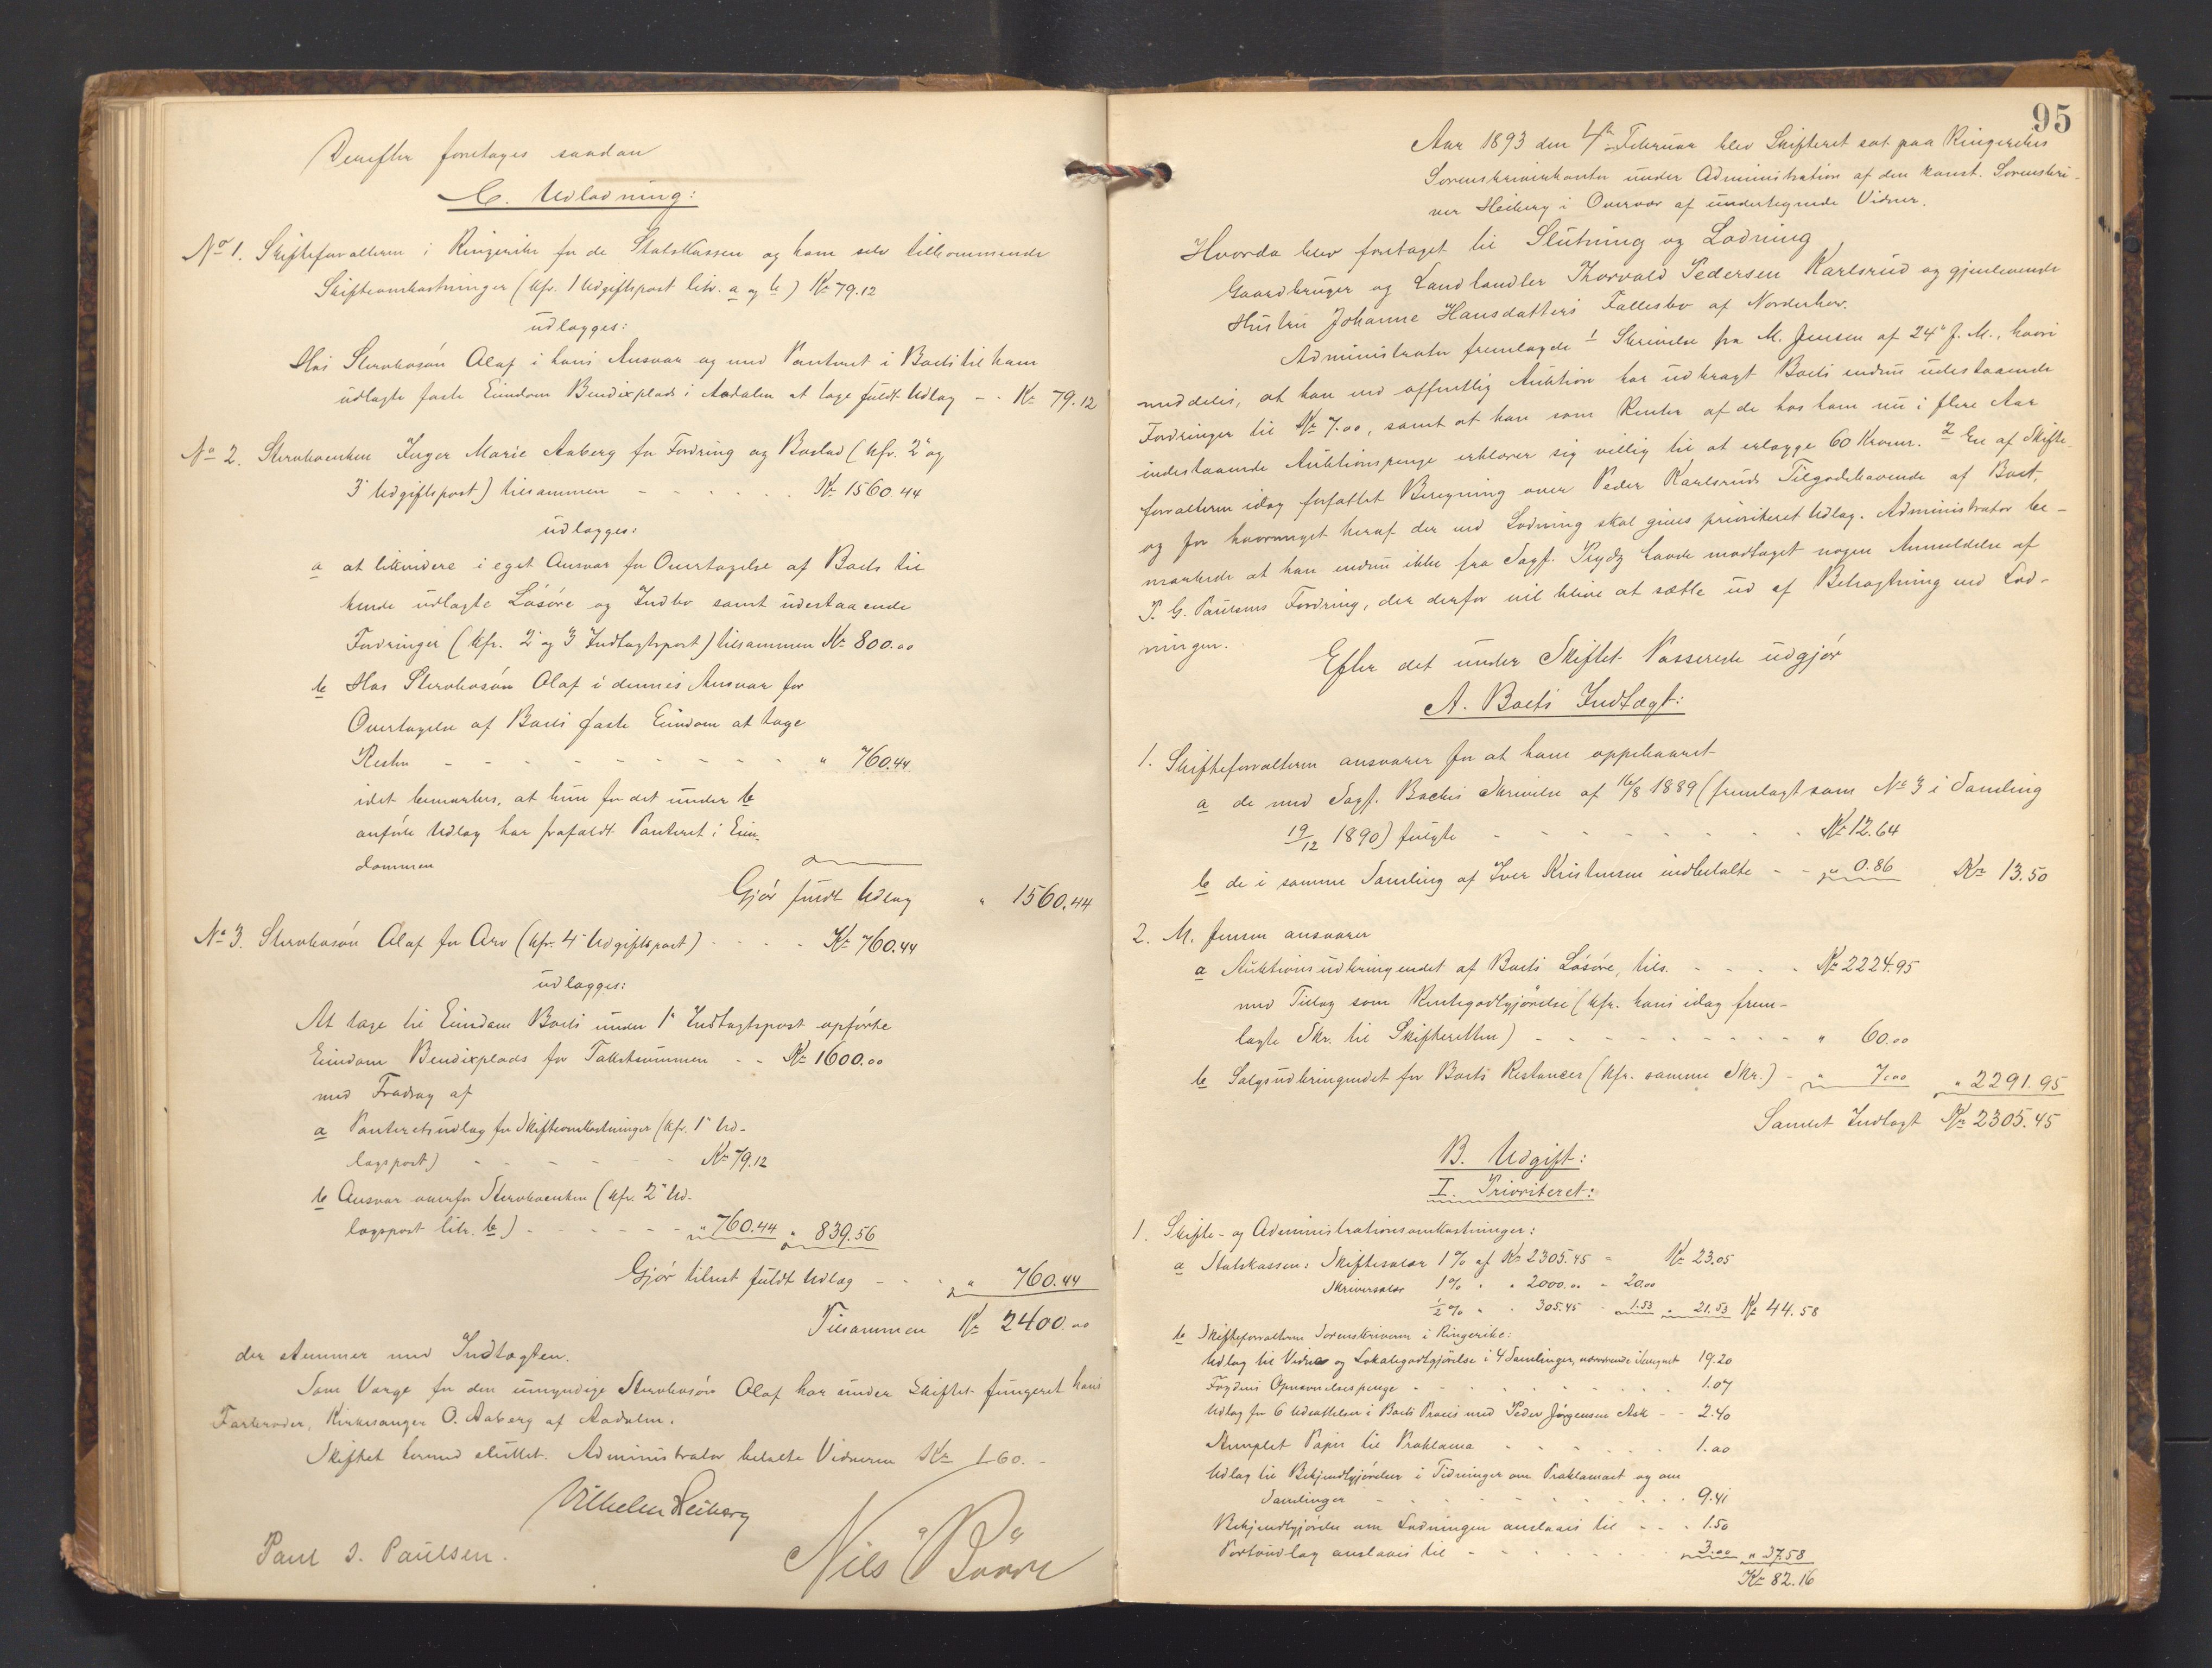 Derefter foretages saadan
C. Udlodning:
No 1. Skifteforvalteren i Ringerike for de Statskassen og ham selv tilkommende
Skifteomkostninger (kfr. 1 Udgiftspost litr. a og b) Kr 79.12
udlægges:
Hos Stervbosøn Olaf i hans Ansvar og med Panteret i Boets til ham
udlagte faste Eiendom Bendixplads i Aadalen at tage fuldt Udlæg - - Kr 79.12
No 2. Stervboenken Inger Marie Aaberg for Fordring og Boslod (kfr. 2 og
3 Udgiftspost) tilsammen - - - - - Kr 1560.44
udlægges:
a at likvidere i eget Ansvar for Overtagelse af Boets til
hende udlagte Løsøre og Indbo samt udestaaende
Fordringer (kfr. 2 og 3 Indtægtspost) tilsammen Kr 800.00
b Hos Stervbosøn Olaf i dennes Ansvar for
Overtagelse af Boets faste Eiendom at tage
Resten - - - - - - - - - " 760.44
idet bemærkes, at hun for det under b
anførte Udlæg har frafaldt Panteret i Eien-
dommen
Gjør fuldt Udlæg " 1560.44
No 3. Stervbosøn Olaf for Arv (kfr. 4 Udgiftspost) - - - - Kr 760.44
udlægges:
At tage til Eiendom Boets under 1 Indtægtspost opførte
Eiendom Bendixplads for Takstsummen - - Kr 1600.00
med Fradrag af
a Panteretsudlæg for Skifteomkostninger (kfr. 1 Ud-
lægspost) - - - - - Kr 79.12
b Ansvar overfor Stervboenken (kfr. 2 Ud-
lægspost litr. b) - - - - - " 760.44 " 839.56
Gjør tilrest fuldt Udlæg - - - " 760.44
Tilsammen Kr 2400.00
der stemmer med Indtægten.
Som Værge for den umyndige Stervbosøn Olaf har under Skiftet fungeret hans
Farbroder, Kirkesanger O. Aaberg af Aadalen.
Skiftet hermed sluttet. Administrator betalte Vidnerne Kr 1.60.
Vilhelm Heiberg
Paul I. Paulsen. Nils
95
Aar 1893 den 4de Februar blev Skifteret sat paa Ringerikes
Sorenskriverkontor under Administration af den konst. Sorenskri-
ver Heiberg i Overvær af undertegnede Vidner.
Hvorda blev foretaget til Slutning og Lodning
Gaardbruger og Landhandler Thorvald Pedersen Karlsrud og gjenlevende
Hustru Johanne Hansdatters Fællesbo af Norderhov.
Administrator fremlagde 1 Skrivelse fra M. Jensen af 24 f. M., hvori
meddeles, at han ved offentlig Auktion har udbragt Boets endnu udestaaende
Fordringer til Kr 7.00, samt at han som Renter af de hos ham nu i flere Aar
indestaaende Auktionspenge erklærer sig villig til at erlægge 60 Kroner. 2 En af Skifte-
forvalteren idag forfattet Beregning over Peder Karlsruds Tilgodehavende af Boet,
og for hvormeget heraf der ved Lodning skal gives prioriteret Udlæg. Administrator be-
mærkede at han endnu ikke fra Sagf. Prydz havde modtaget nogen Anmeldelse af
P. G. Paulsens Fordring, der derfor vil blive at sætte ud af Betragtning ved Lod-
ningen.
Efter det under Skiftet Passerede udgjør
A. Boets Indtægt:
1. Skifteforvalteren ansvarer for at have oppebaaret
a de med Sagf. Backes Skrivelse af 16/8 1889 (fremlagt som No 3 i Samling
19/12 1890) fulgte - - - - - - Kr 12.64
b de i samme Samling af Iver Kristensen indbetalte - - " 0.86 Kr 13.50
2. M. Jensen ansvarer
a Auktionsudbringendet af Boets Løsøre, tils. - - - - Kr 2224.95
med Tillæg som Rentegodtgjørelse (kfr. hans idag frem-
lagte Skr. til Skifteretten) - - - - - - - - " 60.00
b Salgsudbringendet for Boets Restancer (kfr. samme Skr.) - " 7.00 " 2291.95
Samlet Indtægt Kr 2305.45
B. Udgift:
I. Prioriteret:
1. Skifte- og Administrationsomkostninger:
a Statskassen: Skiftesalær 1% af Kr 2305.45 = Kr 23.05
Skriversalær 1% " " 2000.00 " 20.00
½% " " 305.45 " 1.53 " 21.53 Kr 44.58
b Skifteforvalteren Sorenskriveren i Ringerike:
Udlæg til Vidner og Lokalegodtgjørelse i 4 Samlinger, nærværende iberegnet 19.20
Fogdens Opnævnelsespenge - - - - - - 1.07
Udlæg for 6 Udsættelser i Boets Proces med Peder Jørgensen Ask - - 2.40
Stemplet Papir til Proklama - - - - - 1.00
Udlæg til Bekjendtgjørelser i Tidninger om Proklamaet og om
Samlinger - - - - - - - 9.41
Bekjendtgjørelse om Lodningen anslaaes til - - - 1.50
Portoudlæg anslaaes til - - - - - 3.00 " 37.58
Kr 82.16